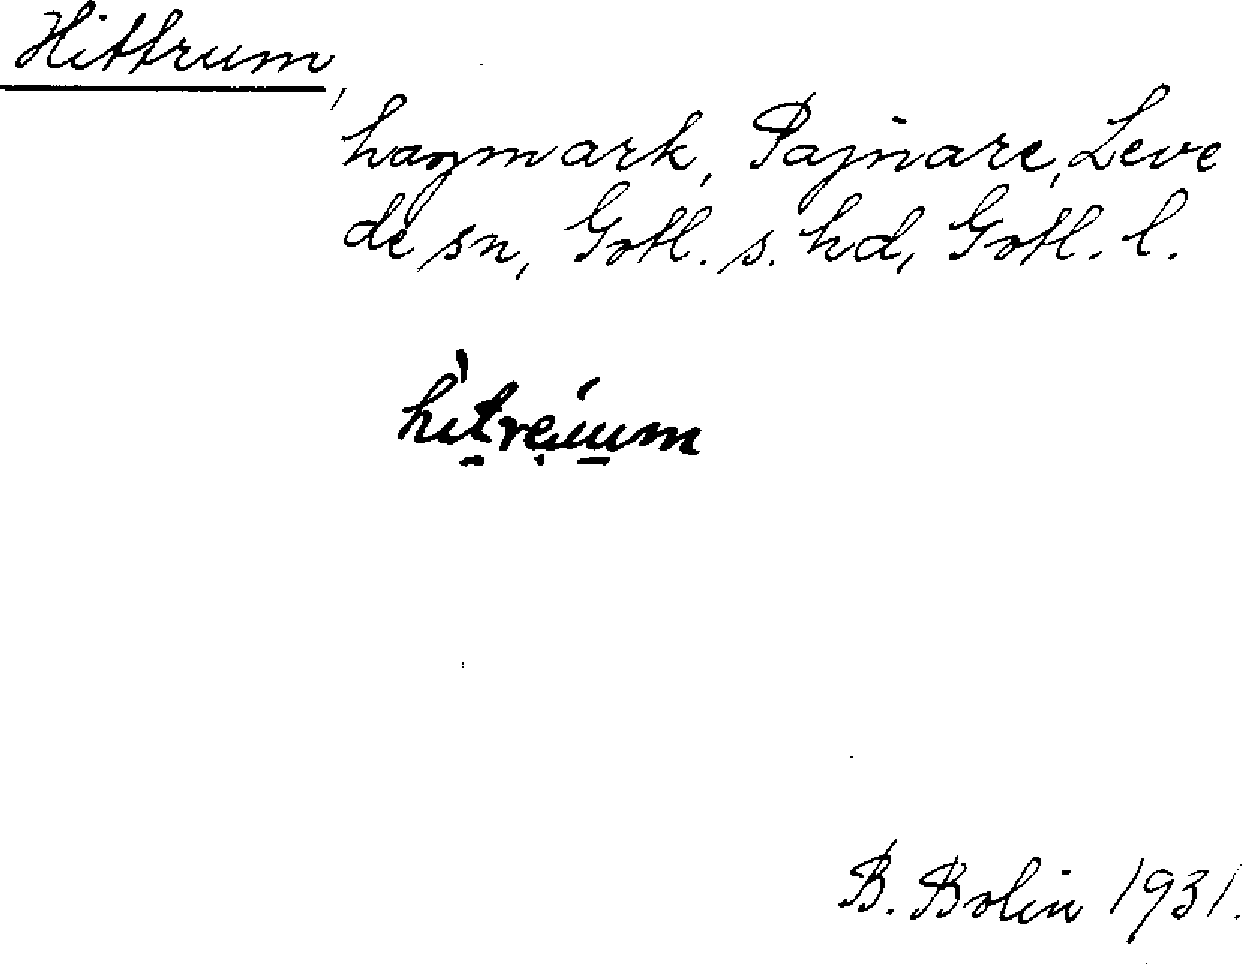 Hittrum,
hagmark, Pajnare, Leve
de sn, Gotl. s. hd, Gotl. l.
B. Bolin 1931.